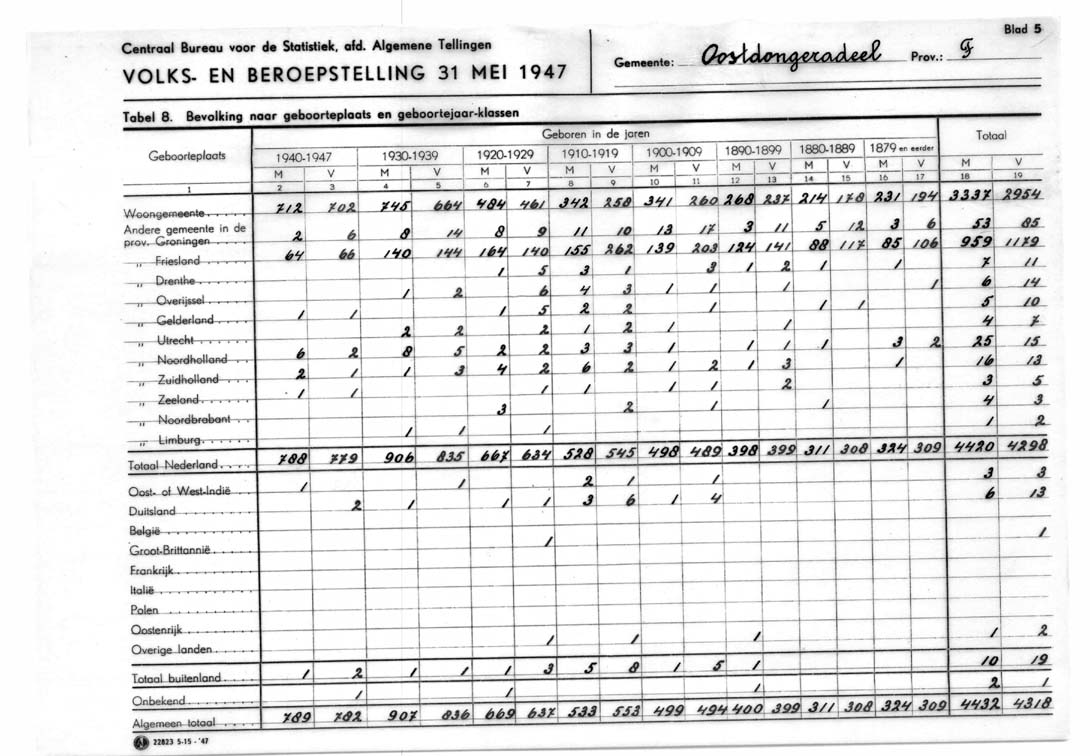 Blad 5
Centraal Bureau voor de Statistiek, afd. Algemene Tellingen
VOLKS- EN BEROEPSTELLING 31 MEI 1947
Gemeente: Oostdongeradeel Prov.: F
Tabel 8. Bevolking naar geboorteplaats en geboortejaar-klassen
Geboorteplaats Geboren in de jaren Totaal
1940-1947 1930-1939 1920-1929 1910-1919 1900-1909 1890-1899 1880-1889 1879 en eerder
M V M V M V M V M V M V M V M V M V
1 2 3 4 5 6 7 8 9 10 11 12 13 14 15 16 17 18 19
Woongemeente 712 702 745 664 484 461 342 258 341 260 268 237 214 178 231 194 3337 2954
Andere gemeente in de
prov. Groningen 2 6 8 14 8 9 11 10 13 17 3 11 5 12 3 6 53 85
„ Friesland 64 66 140 144 164 140 155 262 139 203 124 141 88 117 85 106 959 1179
„ Drenthe 1 5 3 1 3 1 2 1 1 7 11
„ Overijssel 1 2 6 4 3 1 1 1 1 6 14
„ Gelderland 1 1 1 5 2 2 1 1 1 5 10
„ Utrecht 2 2 2 1 2 1 1 4 7
„ Noordholland 6 2 8 5 2 2 3 3 1 1 1 1 3 2 25 15
„ Zuidholland 2 1 1 3 4 2 6 2 1 2 1 3 1 16 13
„ Zeeland 1 1 1 1 1 1 2 3 5
„ Noordbrabant 3 2 1 1 4 3
„ Limburg 1 1 1 1 2
Totaal Nederland 788 779 906 835 667 634 528 545 498 489 398 399 311 308 324 309 4420 4298
Oost- of West-Indië 1 1 2 1 1 3 3
Duitsland 2 1 1 1 3 6 1 4 6 13
België
Groot-Brittannië 1 1
Frankrijk
Italië
Polen
Oostenrijk
Overige landen 1 1 1 1 2
Totaal buitenland 1 2 1 1 1 3 5 8 1 5 1 10 19
Onbekend 1 1 1 2 1
Algemeen totaal 789 782 907 836 669 637 533 553 499 494 400 399 311 308 324 309 4432 4318
22823 5-15-'47